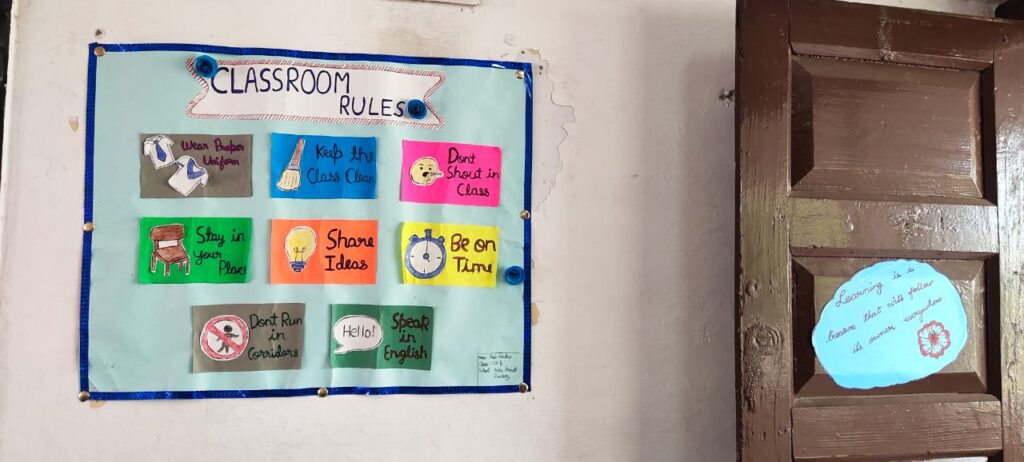 CLASSROOM
RULES
Wear Proper
Uniform
Keep the
Class Clean
Dont
Shout in
Class
Stay in
Your
Place
Share
Ideas
Be on
Time
Dont Run
in
Corridors
Hello!
Speak
in
English
Name
Class
School
Learning is a
treasure that will follow
its owner everywhere